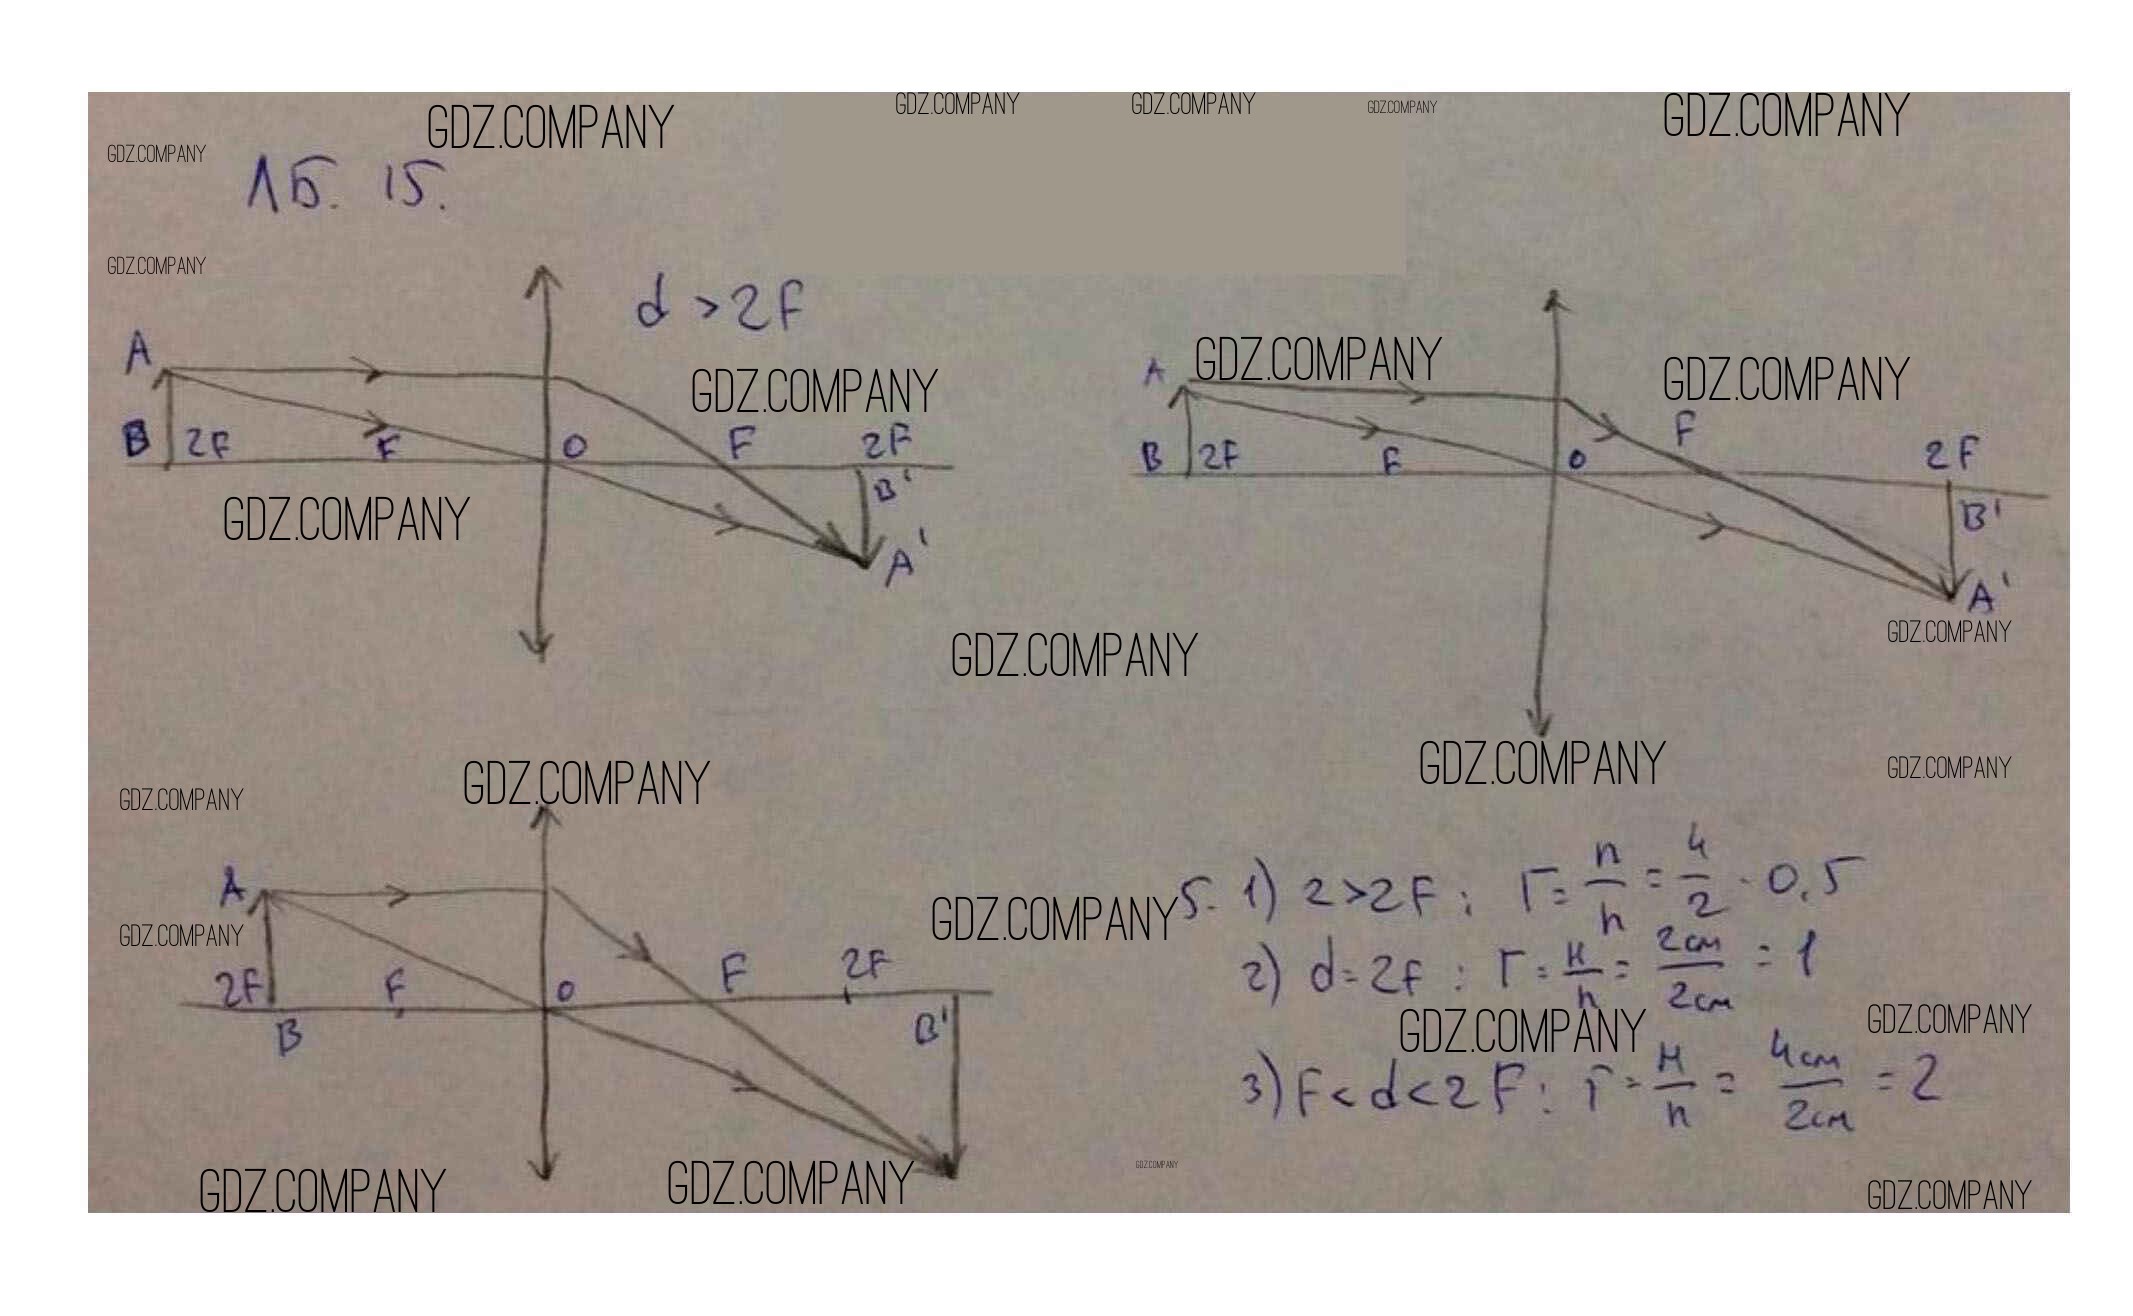 GDZ.COMPANY GDZ.COMPANY GDZ.COMPANY GDZ.COMPANY GDZ.COMPANY
GDZ.COMPANY
ЛБ. 15.
GDZ.COMPANY
d > 2F
A
GDZ.COMPANY
B 2F F O F 2F
B'
A'
GDZ.COMPANY
GDZ.COMPANY
A GDZ.COMPANY GDZ.COMPANY
B 2F F O F 2F
B'
A'
GDZ.COMPANY
GDZ.COMPANY GDZ.COMPANY
GDZ.COMPANY GDZ.COMPANY
A
GDZ.COMPANY GDZ.COMPANY
2F F O F 2F
B B'
GDZ.COMPANY GDZ.COMPANY
5. 1) 2 > 2F : Г = h/h = 4/2 · 0,5
2) d = 2F : Г = H/h = 2см/2см = 1
GDZ.COMPANY GDZ.COMPANY
3) F < d < 2F : Г = H/h = 4см/2см = 2
GDZ.COMPANY
GDZ.COMPANY